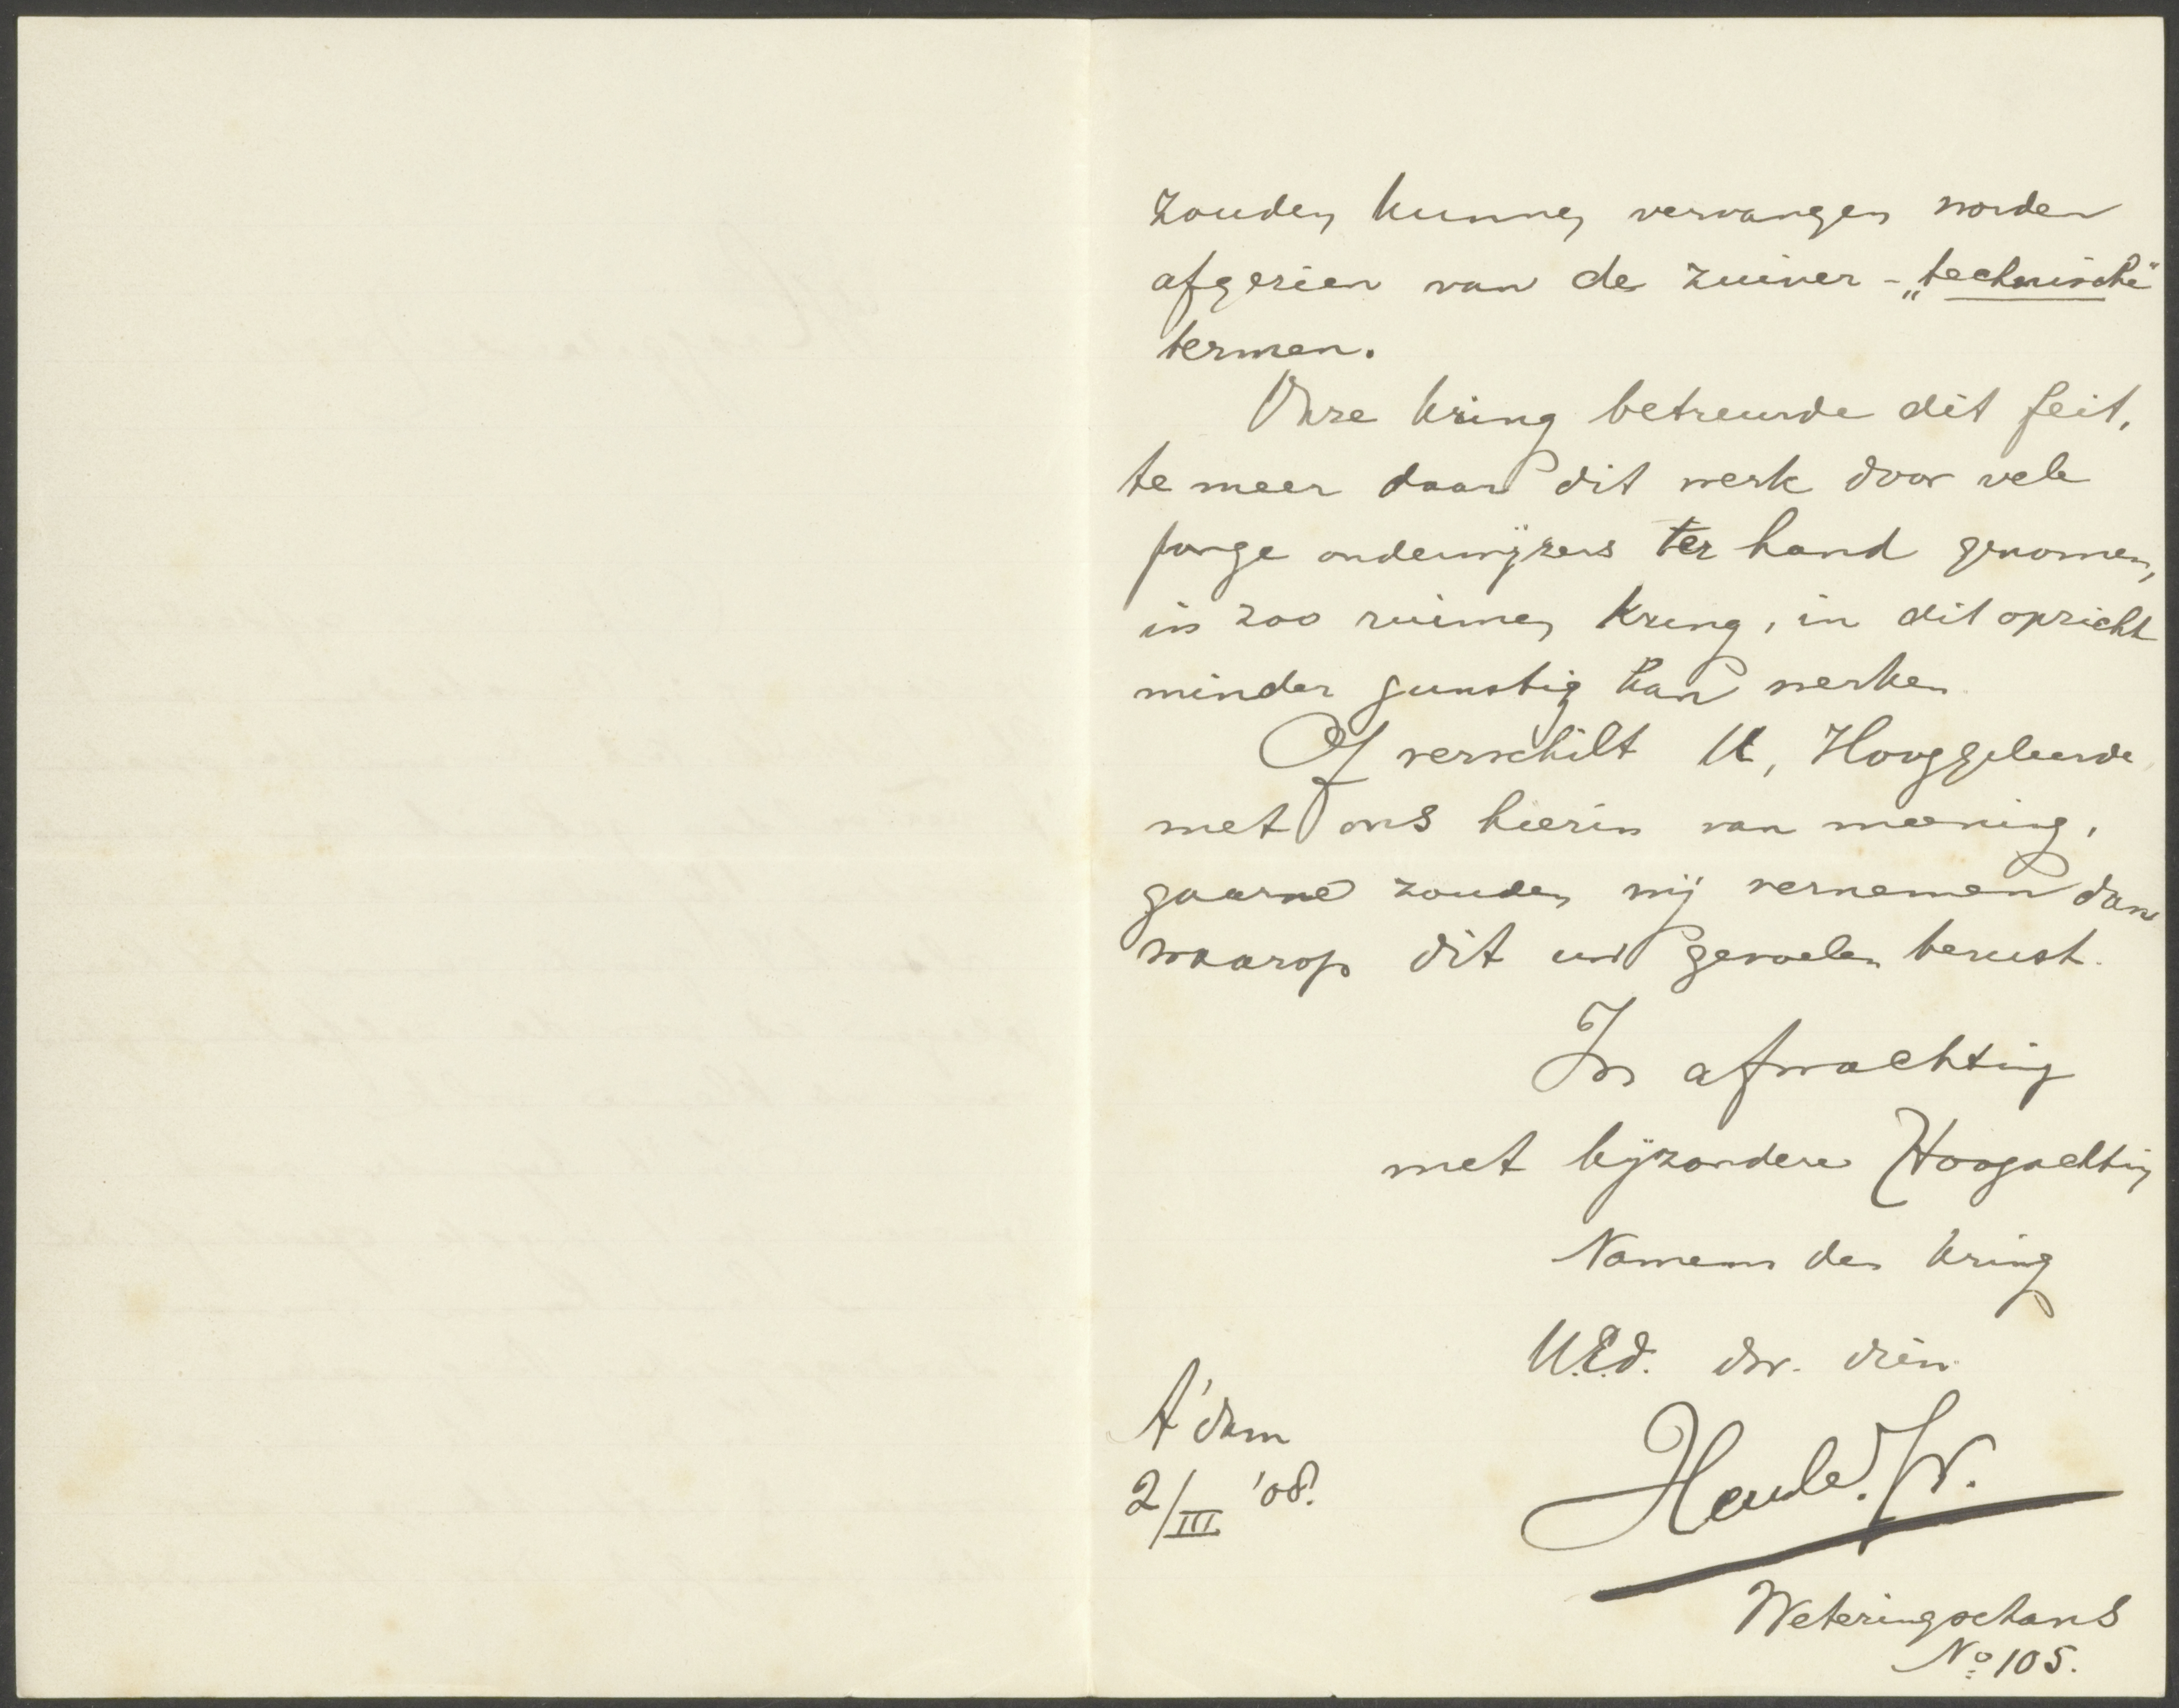 zouden kunnen vervangen worden
afgezien van de zuiver - „technische"
termen.
Onze kring betreurde dit feit,
te meer daar dit werk door vele
jonge onderwijzers ter hand genomen,
in zoo ruimen kring, in dit opzicht
minder gunstig kan werken
Of verschilt U, Hooggeleerde,
met ons hierin van meening,
gaarne zouden wij vernemen dan
waarop dit uw gevoelen berust.
In afwachting
met bijzondere Hoogachting
Namens den kring
U.Ed. dw. dien
A'dam
2/III '08.
Weteringschans
No 105.